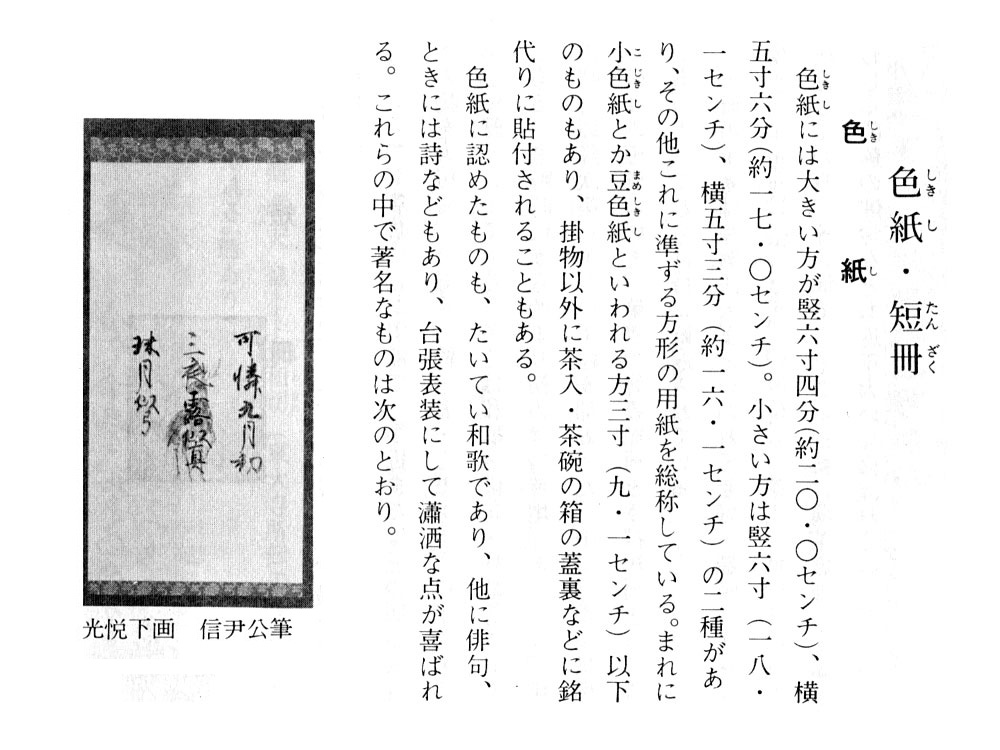 色紙・短冊
色紙
色紙には大きい方が竪六寸四分(約二〇・〇センチ)、横
五寸六分(約一七・〇センチ)。小さい方は竪六寸(一八・
一センチ)、横五寸三分(約一六・一センチ)の二種があ
り、その他これに準ずる方形の用紙を総称している。まれに
小色紙とか豆色紙といわれる方三寸(九・一センチ)以下
のものもあり、掛物以外に茶入・茶碗の箱の蓋裏などに銘
代りに貼付されることもある。
色紙に認めたものも、たいてい和歌であり、他に俳句、
ときには詩などもあり、台張表装にして瀟洒な点が喜ばれ
る。これらの中で著名なものは次のとおり。
可憐九月初
三夜露似真
珠月似弓
光悦下画 信尹公筆